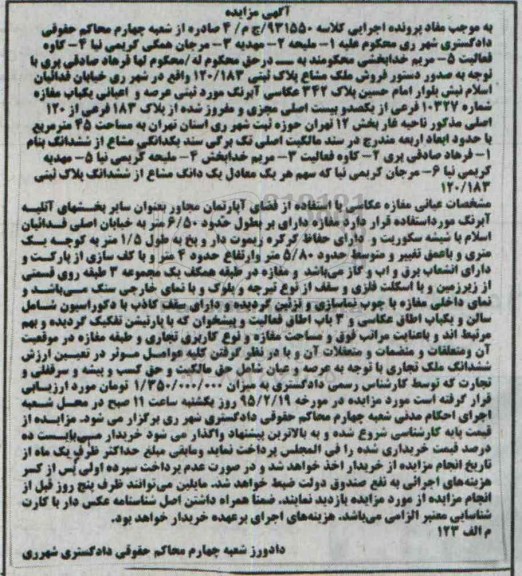 آگهی مزایده
به موجب مفاد پرونده اجرایی کلاسه ۹۳۱۵۵۰/چ م/ ۴ صادره از شعبه چهارم محاکم حقوقی
دادگستری شهر ری محکوم علیه ۱- ملیحه ۲- مهدیه ۳- مرجان همگی کریمی نیا ۴- کاوه
فعالیت ۵- مریم خدابخشی محکومند به ــــ درحق محکوم له/محکوم لها فرهاد صادقی پری با
توجه به صدور دستور فروش ملک مشاع پلاک ثبتی ۱۲۰/۱۸۳ واقع در شهر ری خیابان فدائیان
اسلام نبش بلوار امام حسین پلاک ۳۴۲ عکاسی آبرنگ مورد ثبتی عرصه و اعیانی یکباب مغازه
شماره ۱۰۳۲۷ فرعی از یکصدو بیست اصلی مجزی و مفروز شده از پلاک ۱۸۳ فرعی از ۱۲۰
اصلی مذکور ناحیه فار بخش ۱۲ تهران حوزه ثبت شهر ری استان تهران به مساحت ۴۵ مترمربع
با حدود ابعاد اربعه مندرج در سند مالکیت اصلی تک برگی سند یکدانگی مشاع از ششدانگ بنام
۱- فرهاد صادقی پری ۲- کاوه فعالیت ۳- مریم خدابخش ۴- ملیحه کریمی نیا ۵- مهدیه
کریمی نیا ۶- مرجان کریمی نیا که سهم هر یک معادل یک دانگ مشاع از ششدانگ پلاک ثبتی
۱۲۰/۱۸۳
مشخصات عیانی مغازه عکاسی با استفاده از فضای آپارتمان مجاور بعنوان سایر بخشهای آتلیه
آبرنگ مورداستفاده قرار دارد مغازه دارای بر بطول حدود ۶/۵۰ متر به خیابان اصلی فدائیان
اسلام با شیشه سکوریت و دارای حفاظ کرکره ریموت دار و پخ به طول ۱/۵ متر به کوچه یک
متری و باعمق تغییر و متوسط حدود ۵/۸۰ متر وارتفاع حدود ۴ متر و با کف سازی از پارکت و
دارای انشعاب برق و آب و گاز میباشد و مغازه در طبقه همکف یک مجموعه ۳ طبقه روی قسمتی
از زیرزمین و با اسکلت فلزی و سقف از نوع تیرچه و بلوک و با نمای خارجی سنگ می‌باشد و
نمای داخلی مغازه با چوب نماسازی و تزئین گردیده و دارای سقف کاذب با دکوراسیون شامل
سالن و یکباب اطاق عکاسی و ۳ باب اطاق فعالیت و پیشخوان که با پارتیشن تفکیک گردیده و بهم
مرتبط اند و باعنایت مراتب فوق و مساحت مغازه و نوع کاربری تجاری و طبقه مغازه در موقعیت
آن ومتعلقات و منضمات و متعقلات آن و با در نظر گرفتن کلیه عوامل موثر در تعیین ارزش
ششدانگ ملک تجاری با توجه به عرصه و عیان شامل حق مالکیت و حق کسب و پیشه و سرقفلی و
تجارت که توسط کارشناس رسمی دادگستری به میزان ۱/۳۵۰/۰۰۰/۰۰۰ تومان مورد ارزیابی
قرار گرفته است مورد مزایده در مورخه ۹۵/۲/۱۹ روز یکشنبه ساعت ۱۱ صبح در محل شعبه
اجرای احکام مدنی شعبه چهارم محاکم حقوقی دادگستری شهر ری برگزار می شود. مزایده از
قیمت پایه کارشناسی شروع شده و به بالاترین پیشنهاد واگذار می شود خریدار می‌بایست ده
درصد قیمت خریداری شده را فی المجلس پرداخت نماید ومابقی مبلغ حداکثر ظرف یک ماه از
تاریخ انجام مزایده از خریدار اخذ خواهد شد و در صورت عدم پرداخت سپرده اولی پس از کسر
هزینه‌های اجرائی به نفع صندوق دولت ضبط خواهد شد. مایلین می‌توانند ظرف پنج روز قبل از
انجام مزایده از مورد مزایده بازدید نمایند. ضمنا همراه داشتن اصل شناسنامه عکس دار یا کارت
شناسایی معتبر الزامی می‌باشد. هزینه‌های اجرای برعهده خریدار خواهد بود.
م الف ۱۲۳
دادورز شعبه چهارم محاکم حقوقی دادگستری شهرری